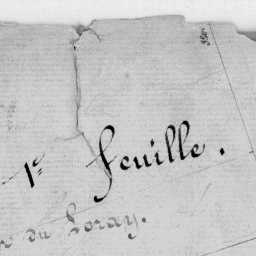 1e Feuille.
du Foray.